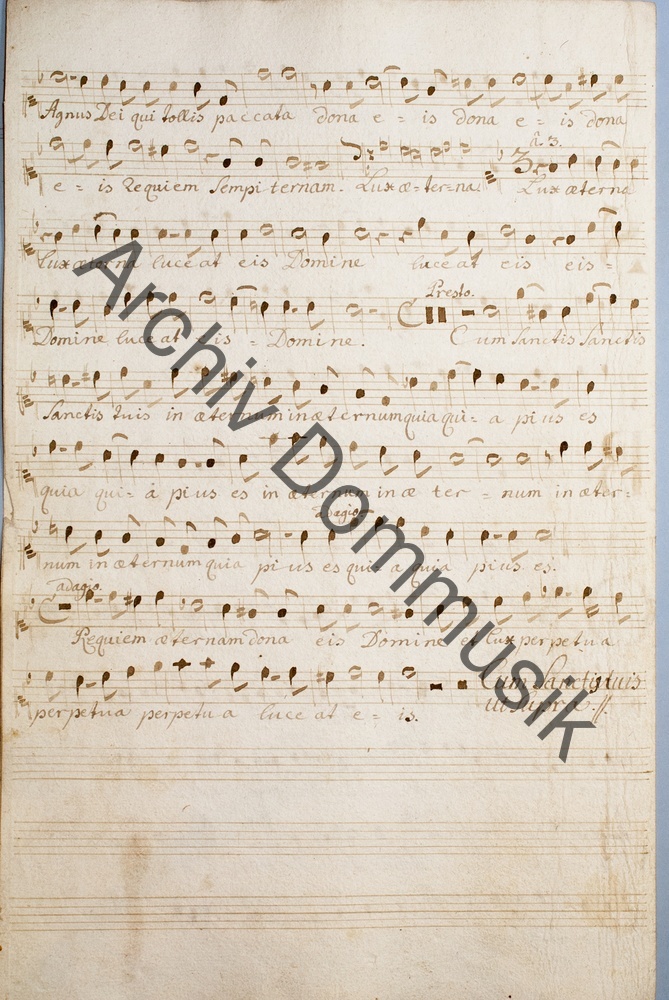 Agnus Dei qui tollis paccata dona e = is dona e = is dona
à 3.
e = is Requiem Sempiternam. Lux æ = ter = na. Lux æterna
Lux æterna luceat eis Domine luceat eis eis =
Presto.
Domine luceat eis = Domine. Cum Sanctis Sanctis
Sanctis tuis in æternum in æternum quia qui = a pius es
quia qui = á pius es in æternum in æ ter = num in æter =
adagio.
num in æternum quia pius es qui = a quia pius es.
adagio.
Requiem æternam dona eis Domine et lux perpetua
Cum Sanctis tuis
perpetua perpetua luceat e = is.
ut supra.
Archiv Dommusik